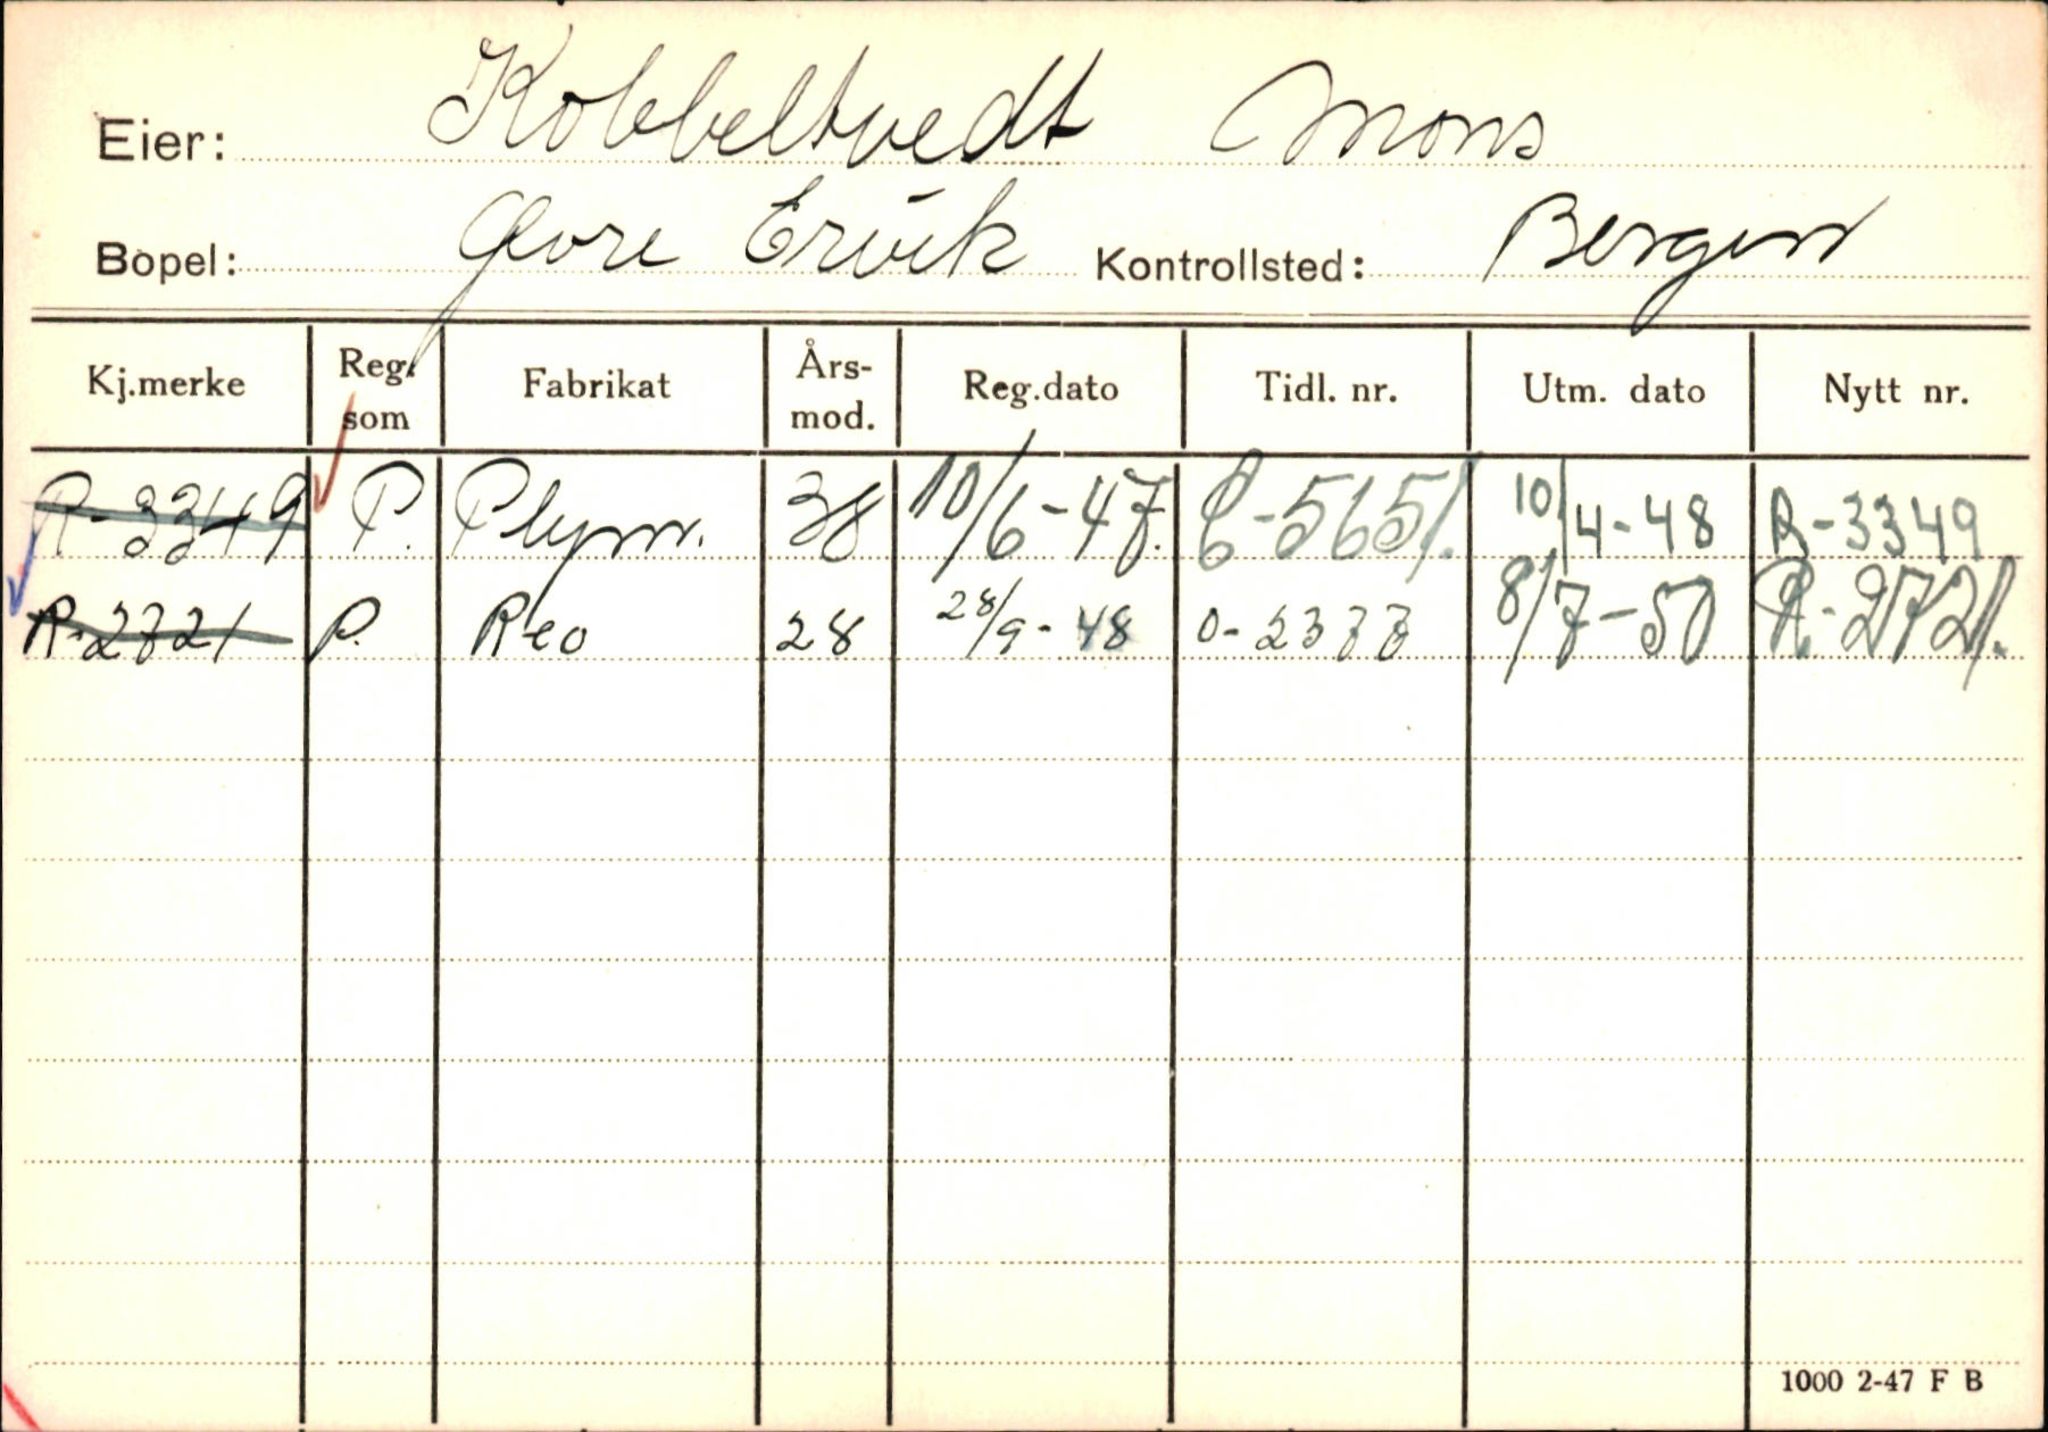 Eier: Kobbeltvedt Mons
Bopel: Øvre Ervik Kontrollsted: Bergen
Kj.merke Reg. som Fabrikat Års-mod. Reg.dato Tidl. nr. Utm. dato Nytt nr.
R-3349 P. Plym. 38 10/6-47. C-5651. 10/4-48 R-3349
R-2721 P. Reo 28 28/9-48 O-2377 8/7-50 R-2721.
1000 2-47 F B